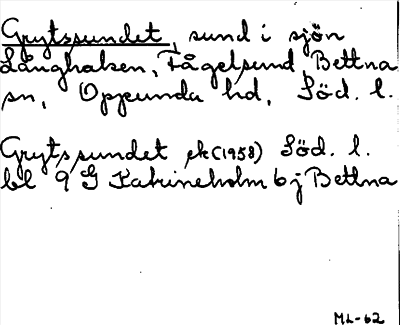 Grytssundet, sund i sjön
Långhalsen, Fågelsund, Bettna
sn, Oppunda hd, Söd. l.
Grytssundet ek (1958) Söd. l.
bl 9 G Katrineholm 6 j Bettna
ML-62